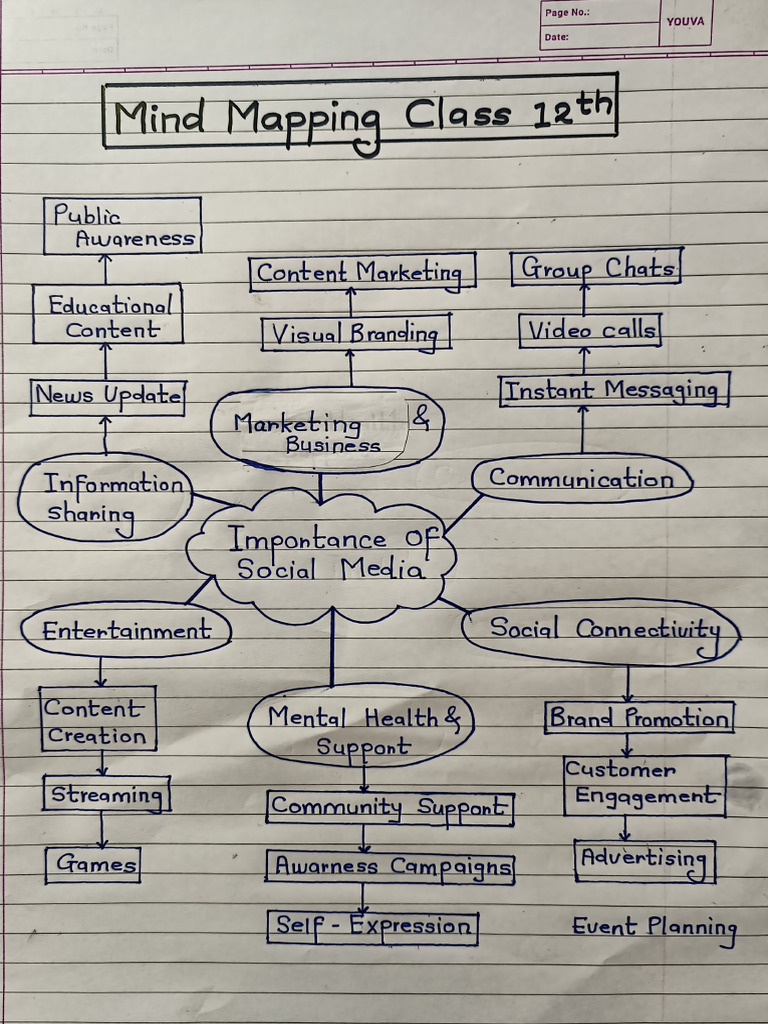 Page No.:
Date:
YOUVA
Mind Mapping Class 12th
Public
Awareness
Educational
Content
News Update
Information
sharing
Content Marketing
Visual Branding
Marketing &
Business
Group Chats
Video calls
Instant Messaging
Communication
Importance Of
Social Media
Entertainment
Content
Creation
Streaming
Games
Mental Health &
Support
Community Support
Awarness Campaigns
Self - Expression
Social Connectivity
Brand Promotion
Customer
Engagement
Advertising
Event Planning